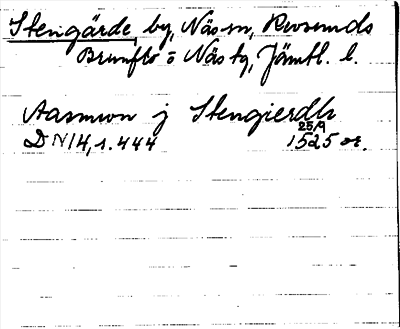 Stengärde by, Näs sn, Revsunds
Brunflo o Näs tg, Jämtl. l.
Aasmwn j Stengierdh
25/9
DN 14, s. 444 1525 or.